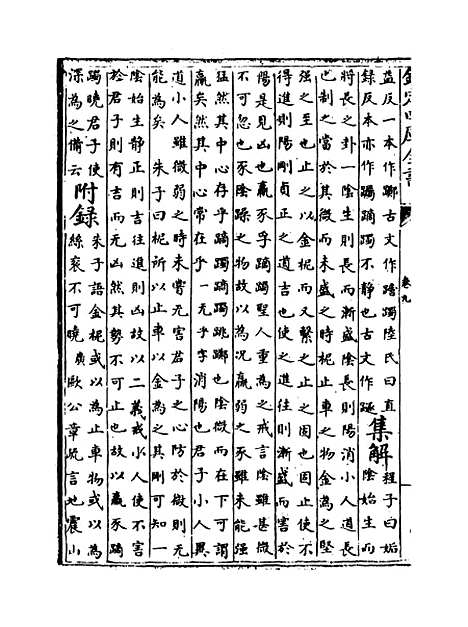 欽定四庫全書 卷九
益反一本作躑古文作蹢躅陸氏曰直
録反本亦作躅蹢躅不静也古文作
集解
程子曰姤
陰始生而
將長之卦一陰生則長而漸盛陰長則陽消小人道長
也制之當於其微而未盛之時柅止車之物金為之堅
強之至也止之以金柅而又繫之止之固也固止使不
得進則陽剛貞正之道吉也使之進往則漸盛而害於
陽是見凶也羸豕孚蹢躅聖人重為之戒言陰雖甚微
不可忽也豕陰躁之物故以為況羸弱之豕雖未能強
猛然其中心存乎蹢躅蹢躅跳躑也陰微而在下可謂
羸矣然其中心常在乎一无乎字消陽也君子小人異
道小人雖微弱之時未嘗无害君子之心防於微則无
能為矣 朱子曰柅所以止車以金為之其剛可知一
陰始生静正則吉往進則凶故以二義戒小人使不害
於君子則有吉而无凶然其勢不可止也故以羸豕蹢
躅曉君子使
深為之備云
附録
朱子語金柅或以為止車物或以為
絲衮不可曉廣歐公章疏言地震山